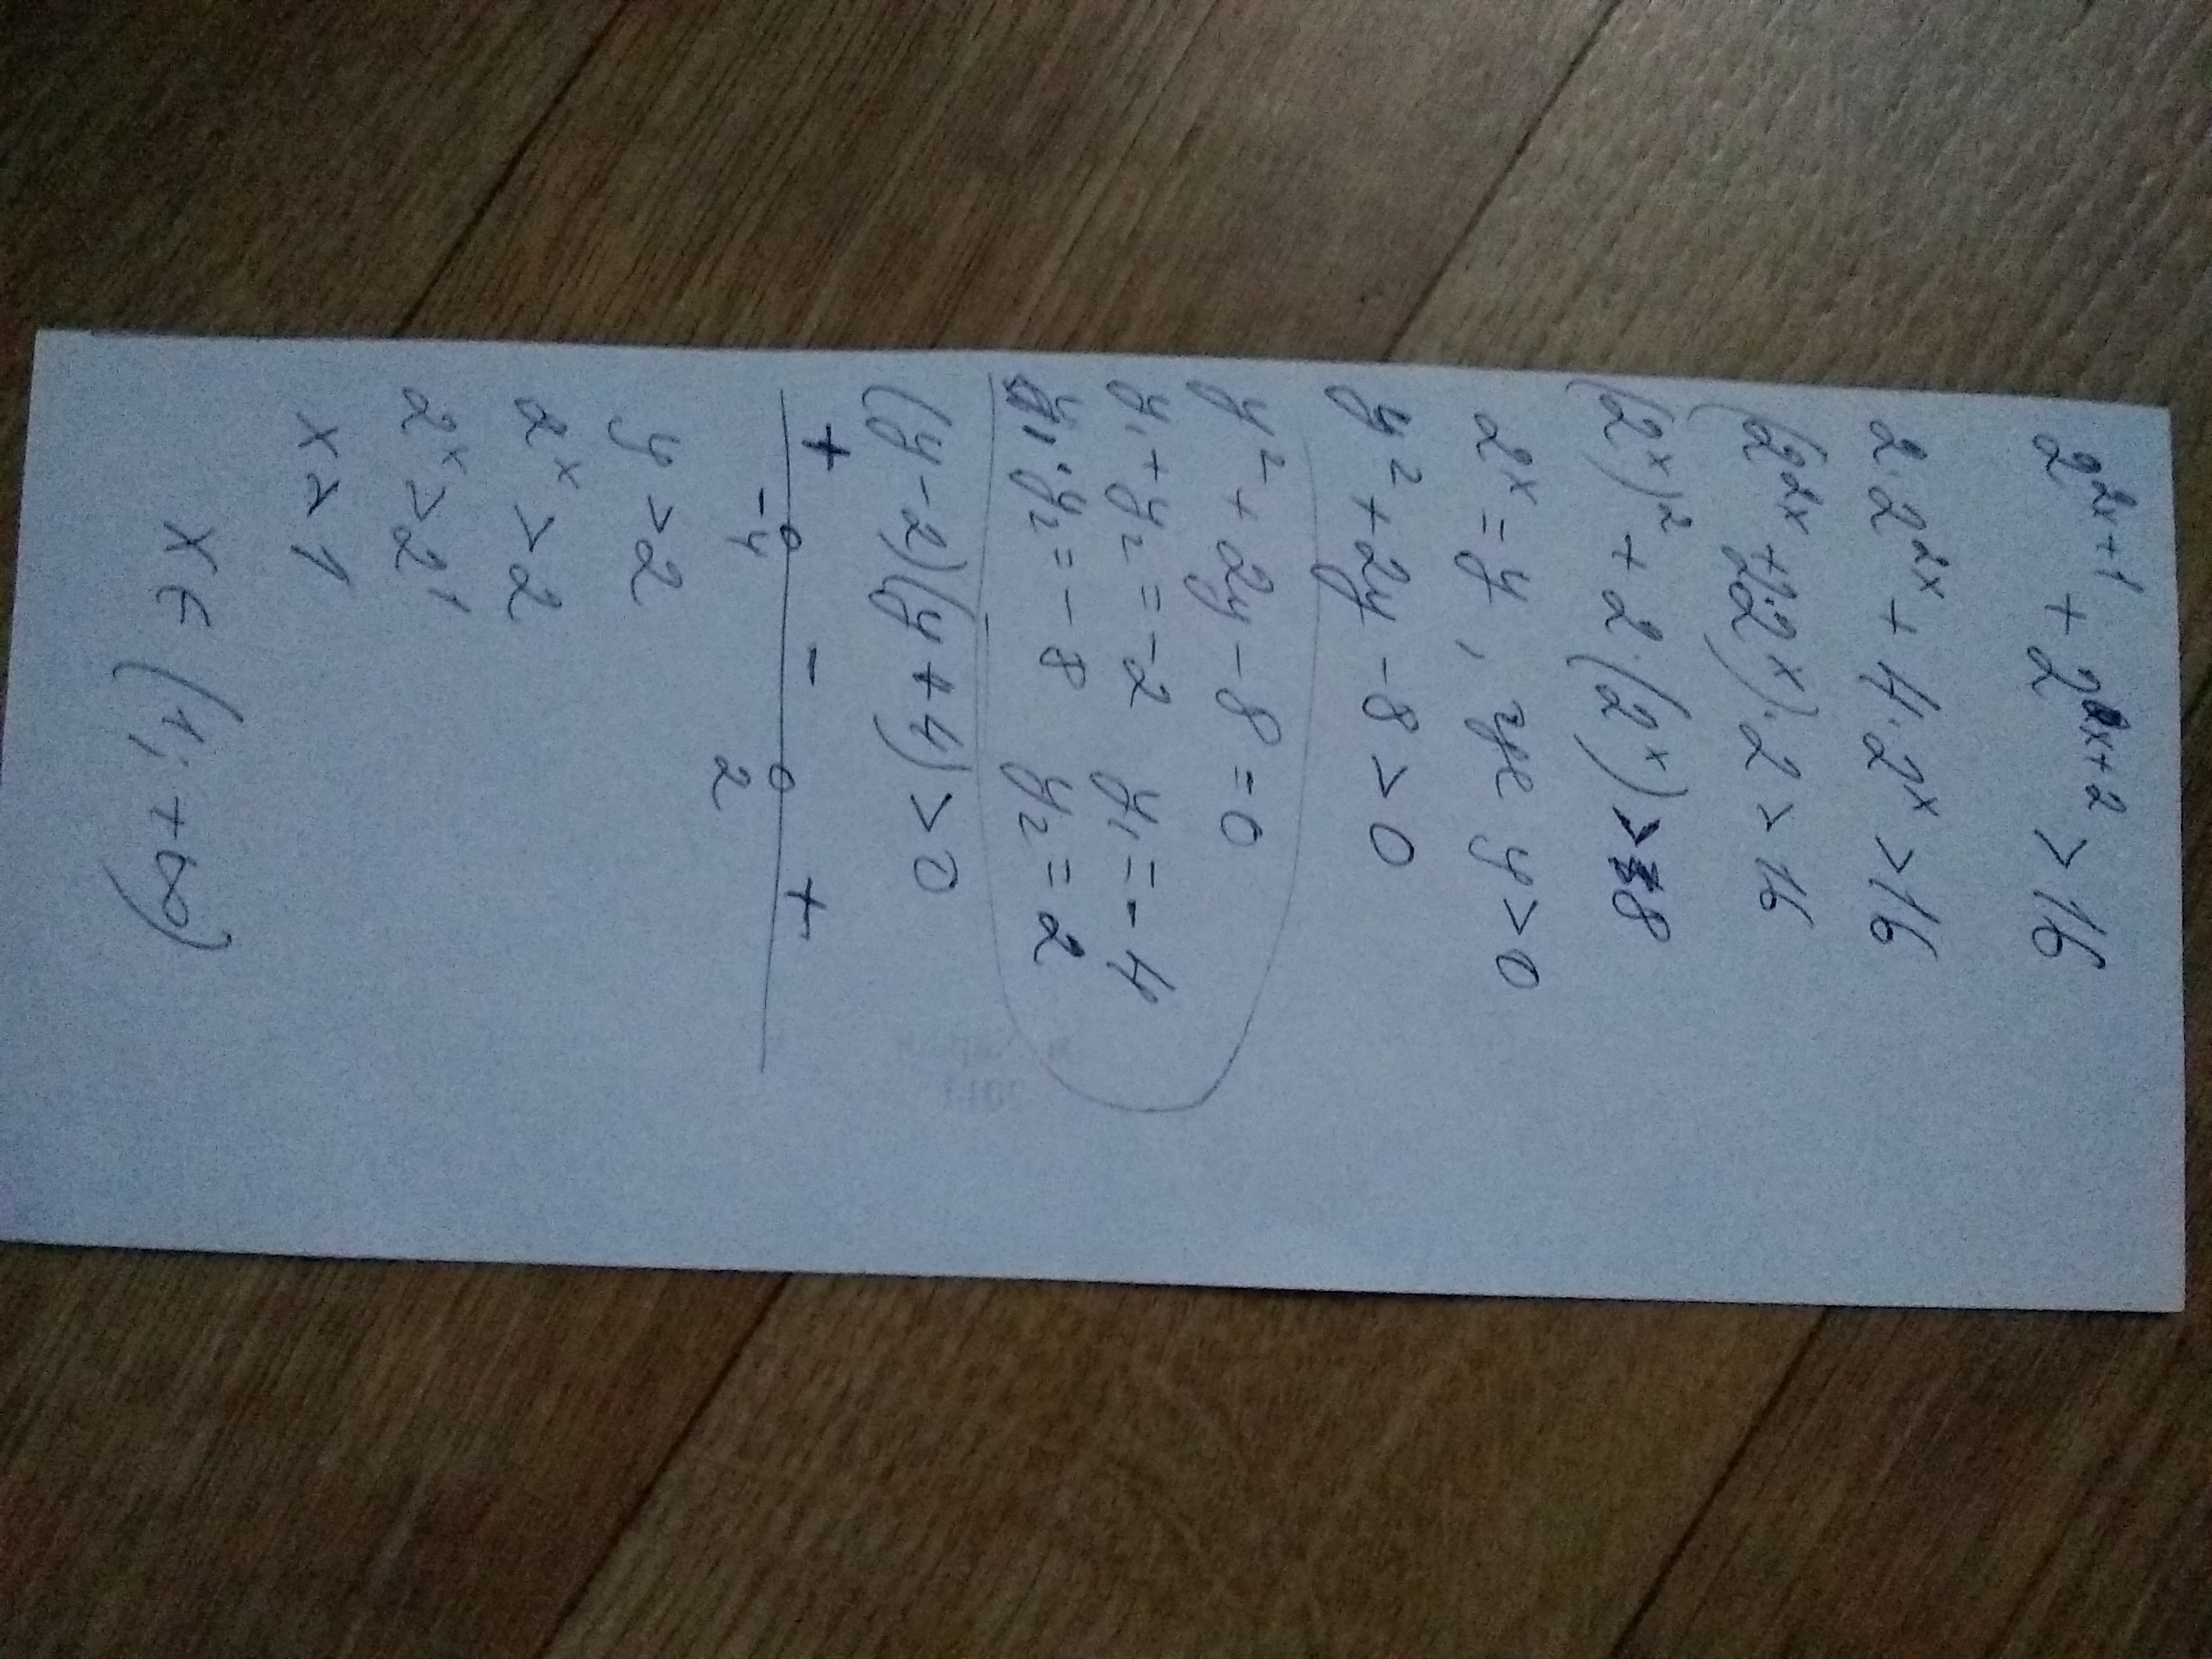 2^{2x+1} + 2^{x+2} > 16
2·2^{2x} + 4·2^x > 16
(2^{2x} + 2·2^x)·2 > 16
(2^x)^2 + 2·(2^x) > 8
2^x = y, где y > 0
y^2 + 2y - 8 > 0
y^2 + 2y - 8 = 0
y_1 + y_2 = -2 y_1 = -4
y_1 · y_2 = -8 y_2 = 2
(y - 2)(y + 4) > 0
+ - +
-4 2
y > 2
2^x > 2
2^x > 2^1
x > 1
x ∈ (1; +∞)